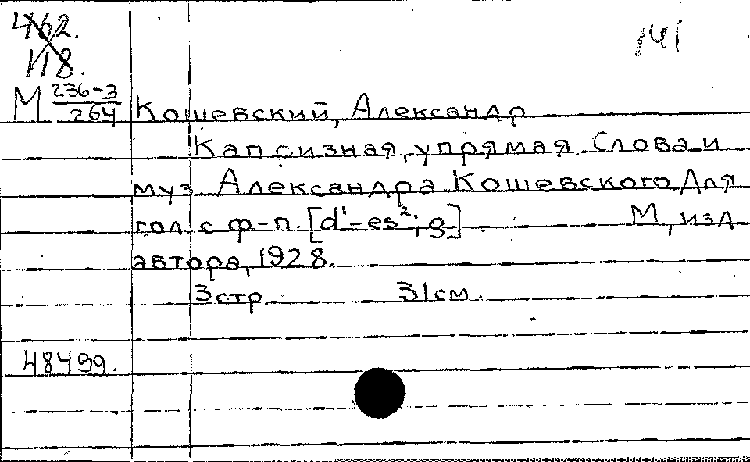 462.
118.
141
М 236-3/264 Кошевский, Александр
Капризная, упрямая. Слова и
муз. Александра Кошевского. Для
гол. с ф-п. [d¹-es²; g.] М, изд.
автора, 1928.
3 стр. 31 см.
48499.